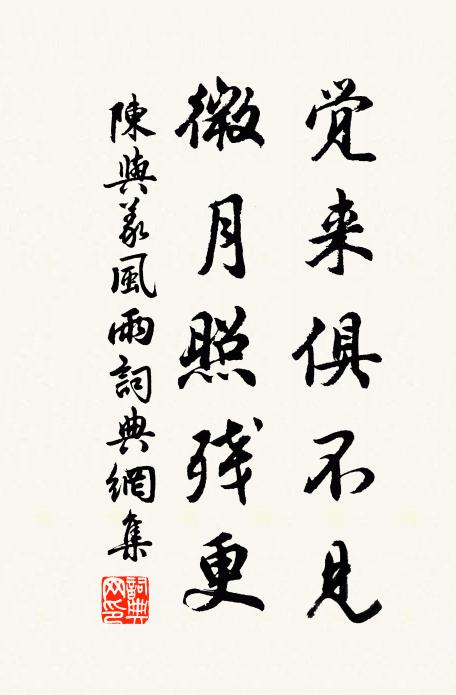 觉来俱不见
微月照残更
陳與義風雨詞典網集
詞典網印